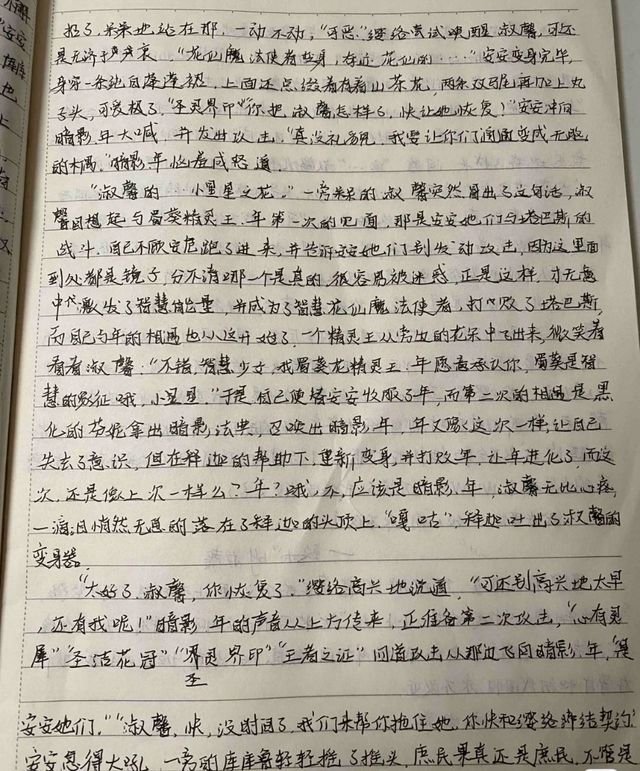 呆呆地站在那，一动不动，"可恶"缪络尝试唤醒淑馨，可还
是无济于事，"花仙魔法使者变身，存在花仙的……"安安变身完毕，
身穿一条纯白莲蓬裙，上面还点缀着有着山茶花，两条双马尾再加上丸
子头，可爱极了，"圣灵界印""你把淑馨怎样了，快让她恢复！"安安冲向
暗影年大喊，并发出攻击，"真没礼貌，我要让你们通通变成无眠
的木偶，"暗影年恼羞成怒道，
"淑馨的……小星星之花，"一旁呆呆的淑馨突然冒出了这句话，淑
馨回想起与蜀葵精灵王.年第一次的见面，那是安安她们与塔巴斯的
战斗，自己不顾安危跑了进来，并告诉安安她们别发动攻击，因为这里面
到处都是镜子，分不清哪一个是真的，很容易被迷惑，正是这样，才无意
中激发了智慧能量，并成为了智慧花仙魔法使者，打败了塔巴斯，
而自己与年的相遇也从这开始了，一个精灵王从旁边的花朵中飞出来，微笑着
看着淑馨，"不错，智慧少女，我蜀葵花精灵王.年愿意承认你，蜀葵是智
慧的象征哦，小星星"于是自己便替安安收服了年，而第二次的相遇是黑
化的芬妮拿出暗影法典，召唤出暗影年，年又像这次一样，让自己
失去了意识，但在释迦的帮助下，重新变身，并打败年，让年进化了，而这
次，还是像上次一样么？年？哦，不，应该是暗影年，淑馨无比心疼，
一滴泪悄然无息的落在了释迦的头顶上，"嘎咕"，释迦吐出了淑馨的
变身器。
"太好了，淑馨，你恢复了，"缪络高兴地说道，"可还别高兴地太早
，还有我呢！"暗影年的声音从上方传来，正准备第二次攻击，"心有灵
犀""圣洁花冠""界灵界印""王者之证"同道攻击从那边飞向暗影年，"是
圣
安安她们，""淑馨，快，没时间了，我们来帮你拖住她，你快和缪络缔结契约，"
安安急得大吼，一旁的库库鲁轻轻推了推头，庶民果真还是庶民，不管是